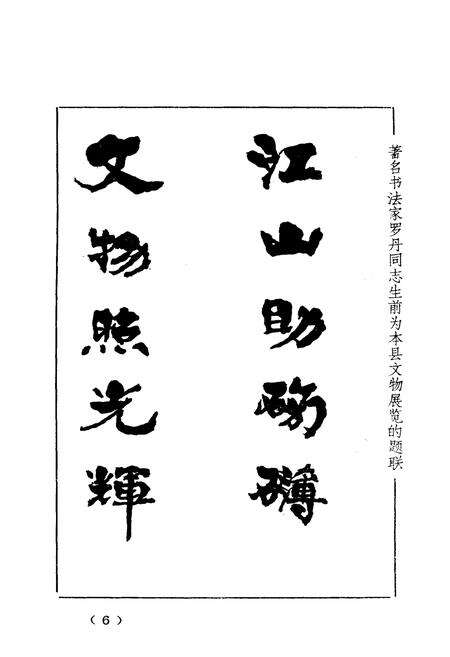 著名书法家罗丹同志生前为本县文物展览的题联
江山助磅礴
文物照光辉
（6）